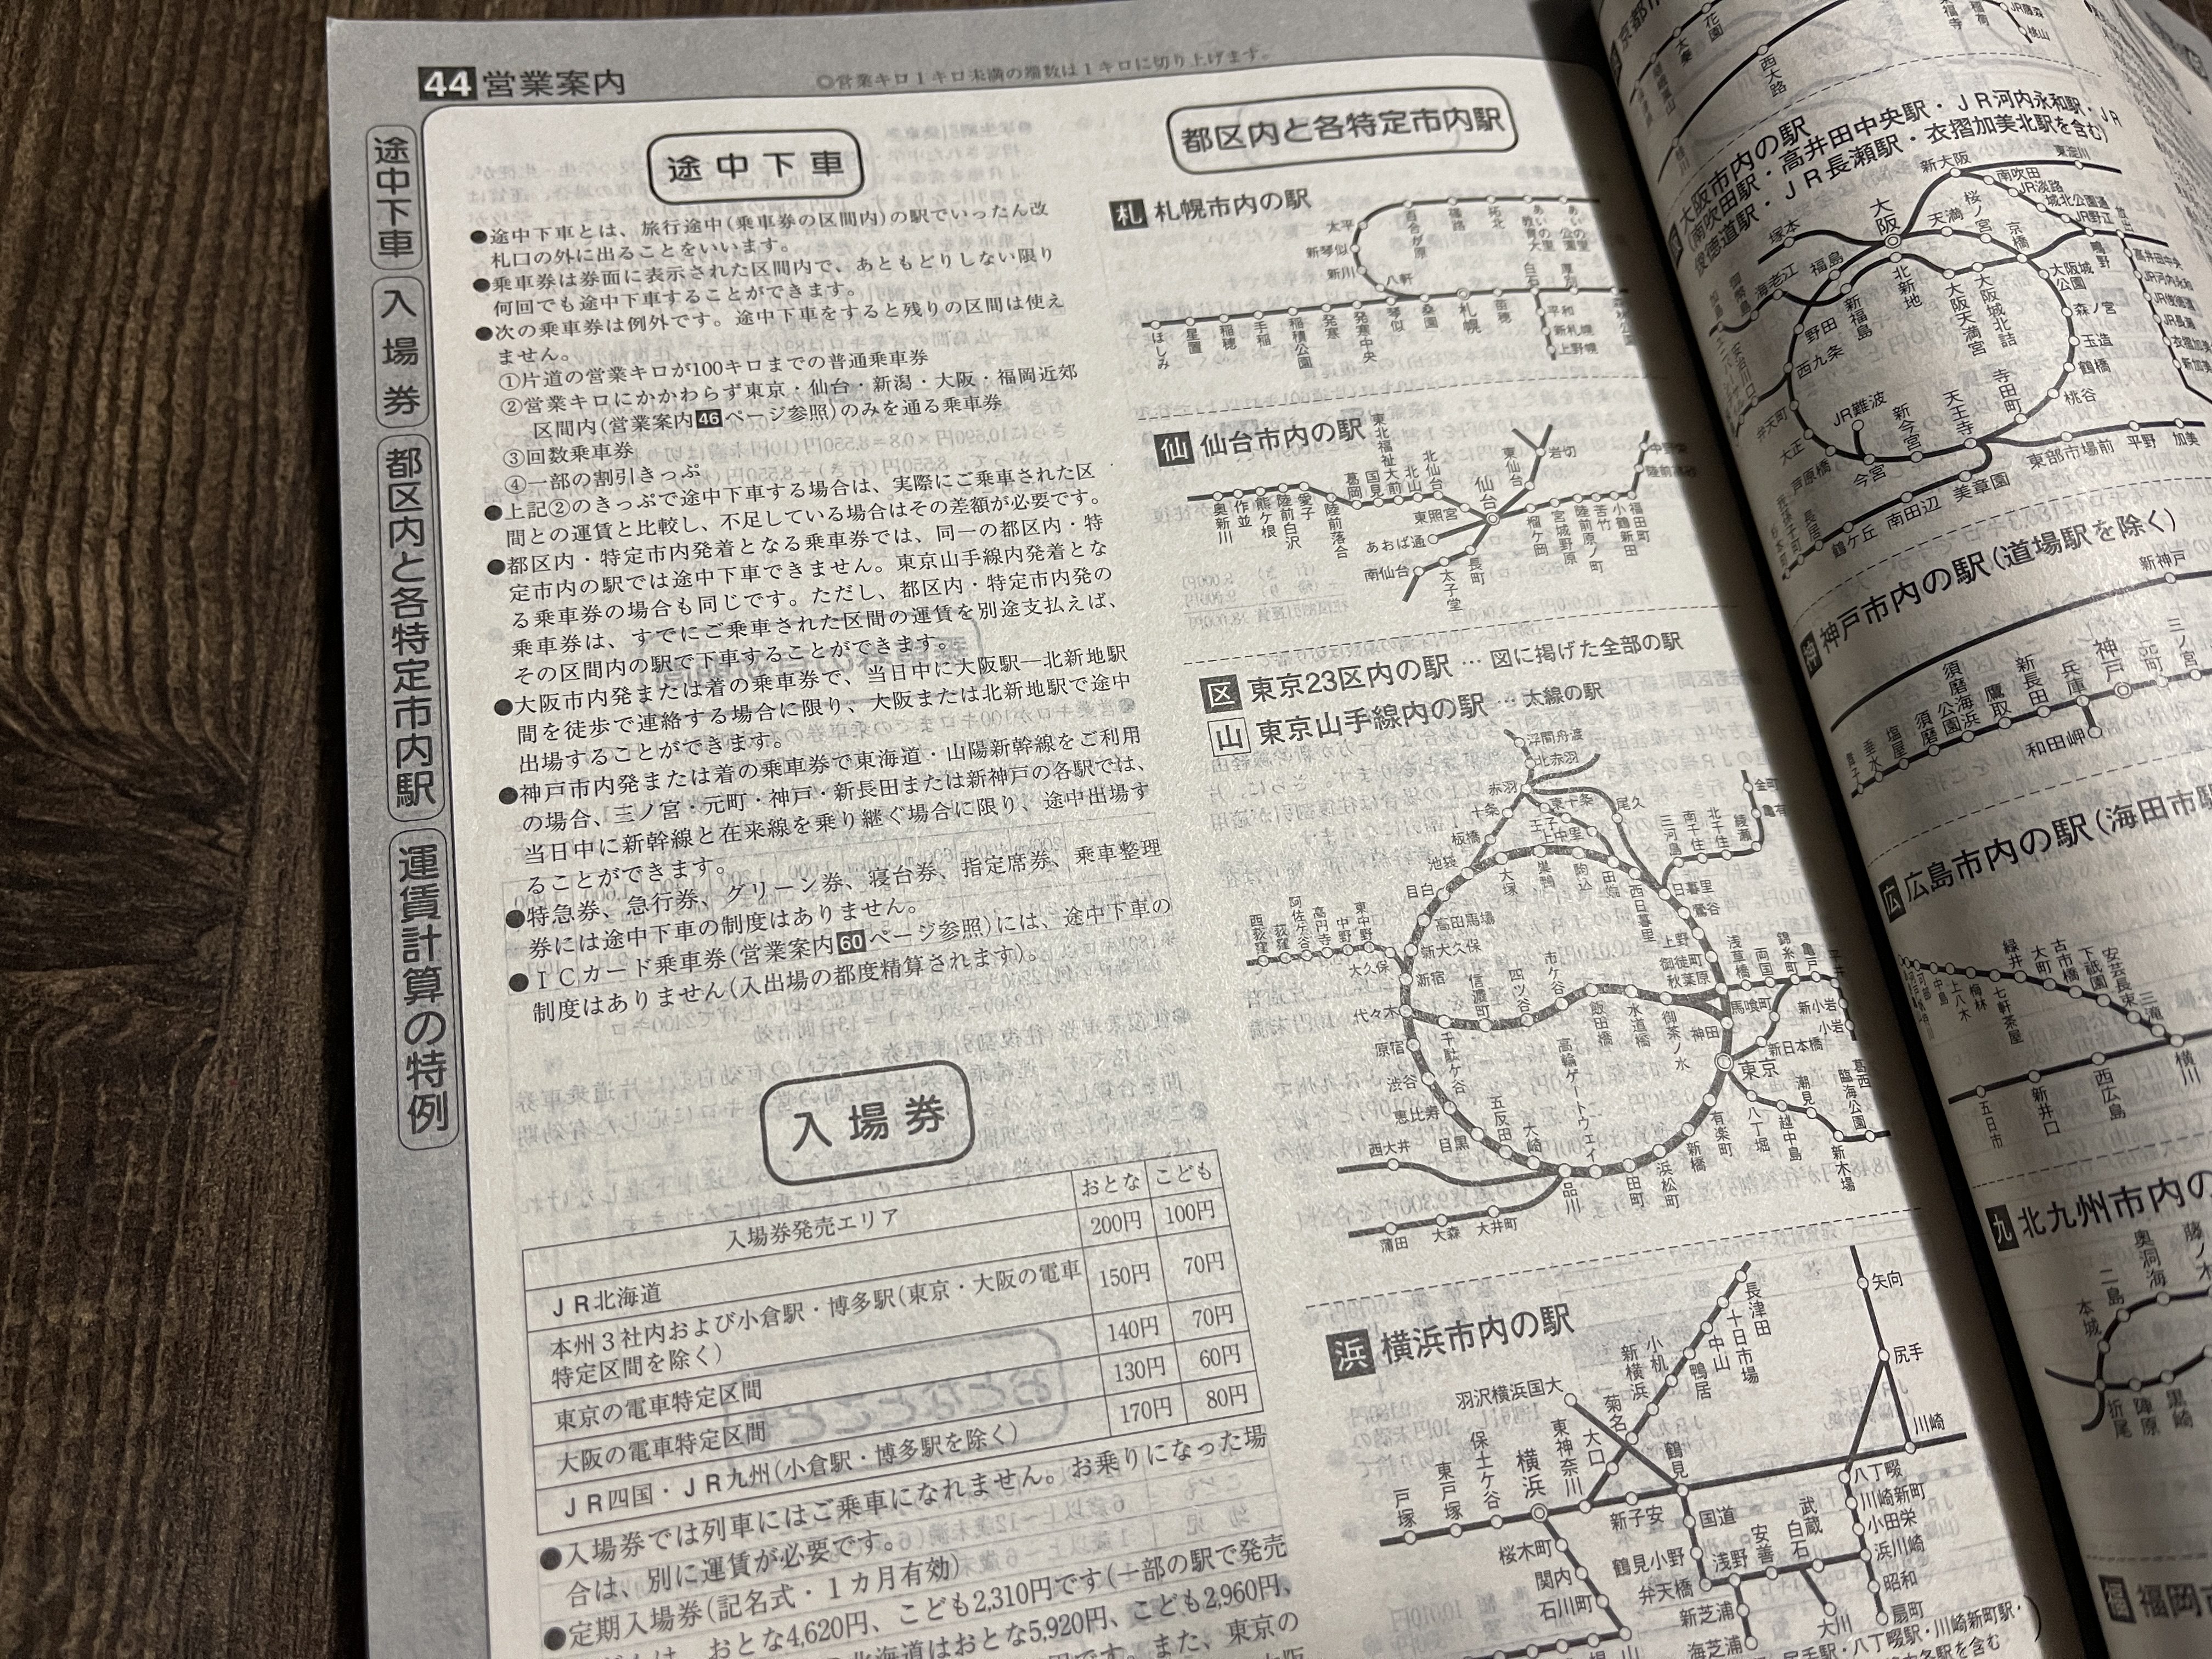 44 営業案内
◎営業キロ1キロ未満の端数は1キロに切り上げます。
途中下車
入場券
都区内と各特定市内駅
運賃計算の特例
途中下車
●途中下車とは、旅行途中(乗車券の区間内)の駅でいったん改
札口の外に出ることをいいます。
●乗車券は券面に表示された区間内で、あともどりしない限り
何回でも途中下車することができます。
●次の乗車券は例外です。途中下車をすると残りの区間は使え
ません。
①片道の営業キロが100キロまでの普通乗車券
②営業キロにかかわらず東京・仙台・新潟・大阪・福岡近郊
区間内(営業案内46ページ参照)のみを通る乗車券
③回数乗車券
④一部の割引きっぷ
●上記②のきっぷで途中下車する場合は、実際にご乗車された区
間との運賃と比較し、不足している場合はその差額が必要です。
●都区内・特定市内発着となる乗車券では、同一の都区内・特
定市内の駅では途中下車できません。東京山手線内発着とな
る乗車券の場合も同じです。ただし、都区内・特定市内発の
乗車券は、すでにご乗車された区間の運賃を別途支払えば、
その区間内の駅で下車することができます。
●大阪市内発または着の乗車券で、当日中に大阪駅―北新地駅
間を徒歩で連絡する場合に限り、大阪または北新地駅で途中
出場することができます。
●神戸市内発または着の乗車券で東海道・山陽新幹線をご利用
の場合、三ノ宮・元町・神戸・新長田または新神戸の各駅では、
当日中に新幹線と在来線を乗り継ぐ場合に限り、途中出場す
ることができます。
●特急券、急行券、グリーン券、寝台券、指定席券、乗車整理
券には途中下車の制度はありません。
●ICカード乗車券(営業案内60ページ参照)には、途中下車の
制度はありません(入出場の都度精算されます)。
入場券
入場券発売エリア おとな こども
JR北海道 200円 100円
本州3社内および小倉駅・博多駅(東京・大阪の電車
特定区間を除く) 150円 70円
東京の電車特定区間 140円 70円
大阪の電車特定区間 130円 60円
JR四国・JR九州(小倉駅・博多駅を除く) 170円 80円
●入場券では列車にはご乗車になれません。お乗りになった場
合は、別に運賃が必要です。
●定期入場券(記名式・1カ月有効)
おとな4,620円、こども2,310円です(一部の駅で発売
北海道はおとな5,920円、こども2,960円、
円です。また、東京の
都区内と各特定市内駅
札 札幌市内の駅
太平
百合が原
篠路
拓北
あいの里教育大
あいの里公園
新琴似
新川
八軒
白石
厚別
ほしみ
星置
稲穂
手稲
稲積公園
発寒
発寒中央
琴似
桑園
札幌
苗穂
平和
新札幌
上野幌
森林公園
仙 仙台市内の駅
東北福祉大前
国見
葛岡
北山
北仙台
東仙台
岩切
仙台
奥新川
作並
熊ケ根
陸前白沢
愛子
陸前落合
東照宮
あおば通
榴ケ岡
宮城野原
陸前原ノ町
苦竹
小鶴新田
福田町
南仙台
太子堂
長町
区 東京23区内の駅 … 図に掲げた全部の駅
山 東京山手線内の駅 … 太線の駅
浮間舟渡
北赤羽
赤羽
十条
東十条
王子
上中里
尾久
板橋
池袋
大塚
巣鴨
駒込
田端
西日暮里
日暮里
鶯谷
三河島
南千住
北千住
綾瀬
亀有
金町
目白
高田馬場
新大久保
新宿
西荻窪
荻窪
阿佐ケ谷
高円寺
中野
東中野
大久保
代々木
原宿
渋谷
恵比寿
目黒
五反田
大崎
品川
千駄ケ谷
信濃町
四ツ谷
市ケ谷
飯田橋
水道橋
御茶ノ水
上野
御徒町
秋葉原
神田
東京
浅草橋
両国
錦糸町
亀戸
平井
馬喰町
新小岩
小岩
新日本橋
有楽町
新橋
浜松町
田町
高輪ゲートウェイ
八丁堀
越中島
潮見
新木場
葛西臨海公園
西大井
蒲田
大森
大井町
浜 横浜市内の駅
長津田
十日市場
中山
鴨居
小机
新横浜
菊名
大口
羽沢横浜国大
東神奈川
横浜
保土ケ谷
東戸塚
戸塚
鶴見
新子安
矢向
尻手
川崎
八丁畷
川崎新町
小田栄
浜川崎
昭和
扇町
国道
鶴見小野
弁天橋
浅野
安善
武蔵白石
大川
新芝浦
海芝浦
桜木町
関内
石川町
尻手駅・八丁畷駅・川崎新町駅・
各駅を含む)
西大路
花園
太秦
JR藤森
桃山
大阪市内の駅
(南吹田駅・高井田中央駅・JR河内永和駅・JR
俊徳道駅・JR長瀬駅・衣摺加美北駅を含む)
新大阪
東淀川
南吹田
JR淡路
城北公園通
JR野江
鴫野
放出
高井田中央
JR河内永和
JR俊徳道
JR長瀬
衣摺加美北
新加美
塚本
大阪
天満
桜ノ宮
京橋
大阪城公園
森ノ宮
玉造
鶴橋
桃谷
寺田町
天王寺
新今宮
今宮
JR難波
芦原橋
大正
弁天町
西九条
野田
福島
新福島
海老江
御幣島
加島
北新地
大阪天満宮
大阪城北詰
安治川口
東部市場前
平野
加美
美章園
南田辺
鶴ケ丘
長居
神 神戸市内の駅(道場駅を除く)
新神戸
三ノ宮
元町
神戸
兵庫
新長田
鷹取
須磨海浜公園
須磨
塩屋
垂水
舞子
和田岬
広 広島市内の駅(海田市駅
緑井
大町
古市橋
下祗園
安芸長束
三滝
七軒茶屋
梅林
上八木
中島
横川
西広島
新井口
五日市
九 北九州市内の
本城
二島
奥洞海
藤ノ木
折尾
陣原
黒崎
福 福岡